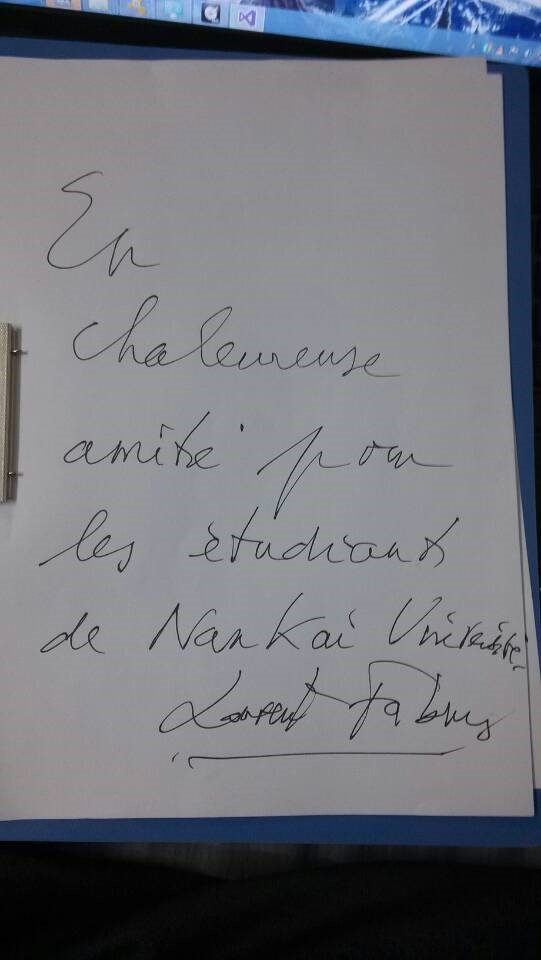 En
chaleureuse
amitié pour
les étudiants
de Nankai Université
Laurent Fabius